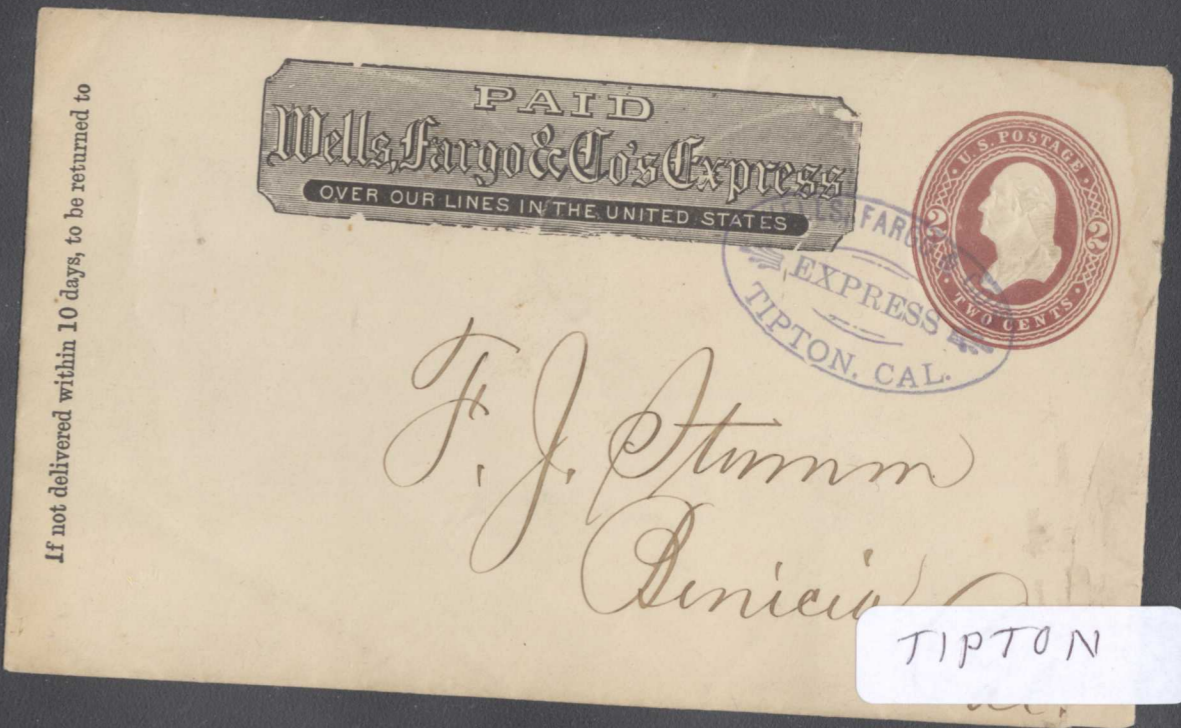 If not delivered within 10 days, to be returned to
PAID
Wells, Fargo & Co's Express
OVER OUR LINES IN THE UNITED STATES
U.S. POSTAGE
2 2
TWO CENTS
WELLS, FARGO &
EXPRESS
TIPTON, CAL.
F. J. Stumm
Benicia
TIPTON